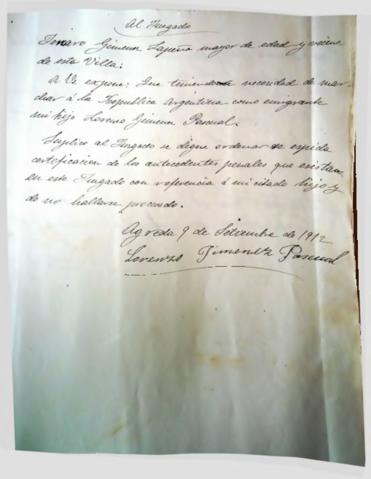 Al Juzgado
Genaro Gimenez Lapeña mayor de edad y vecino
de esta Villa:
A Vs expone: Que teniendo necesidad de mar-
char á la Republica Argentina como emigrante
mi hijo Lorenzo Gimenez Pascual.
Suplico al Juzgado se digne ordenar se expida
certificacion de los antecedentes penales que existan
en este Juzgado con referencia á mi citado hijo y
de no hallarse procesado.
Agreda 9 de Setiembre de 1912
Lorenzo Jimenez Pascual